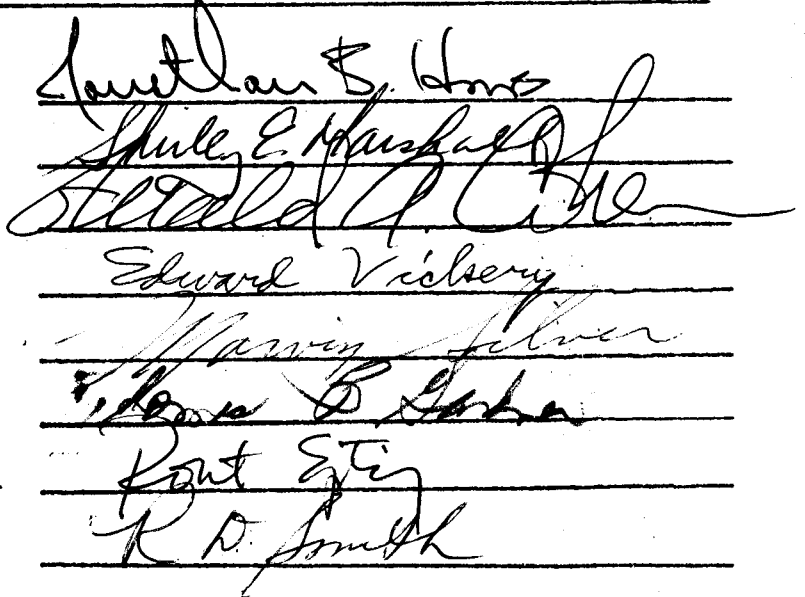 Jonathan B. Howes
Shirley E Marshall
Gerald A. Cohen
Edward Vickery
Marvin Silver
B Gardner
R D. Smith